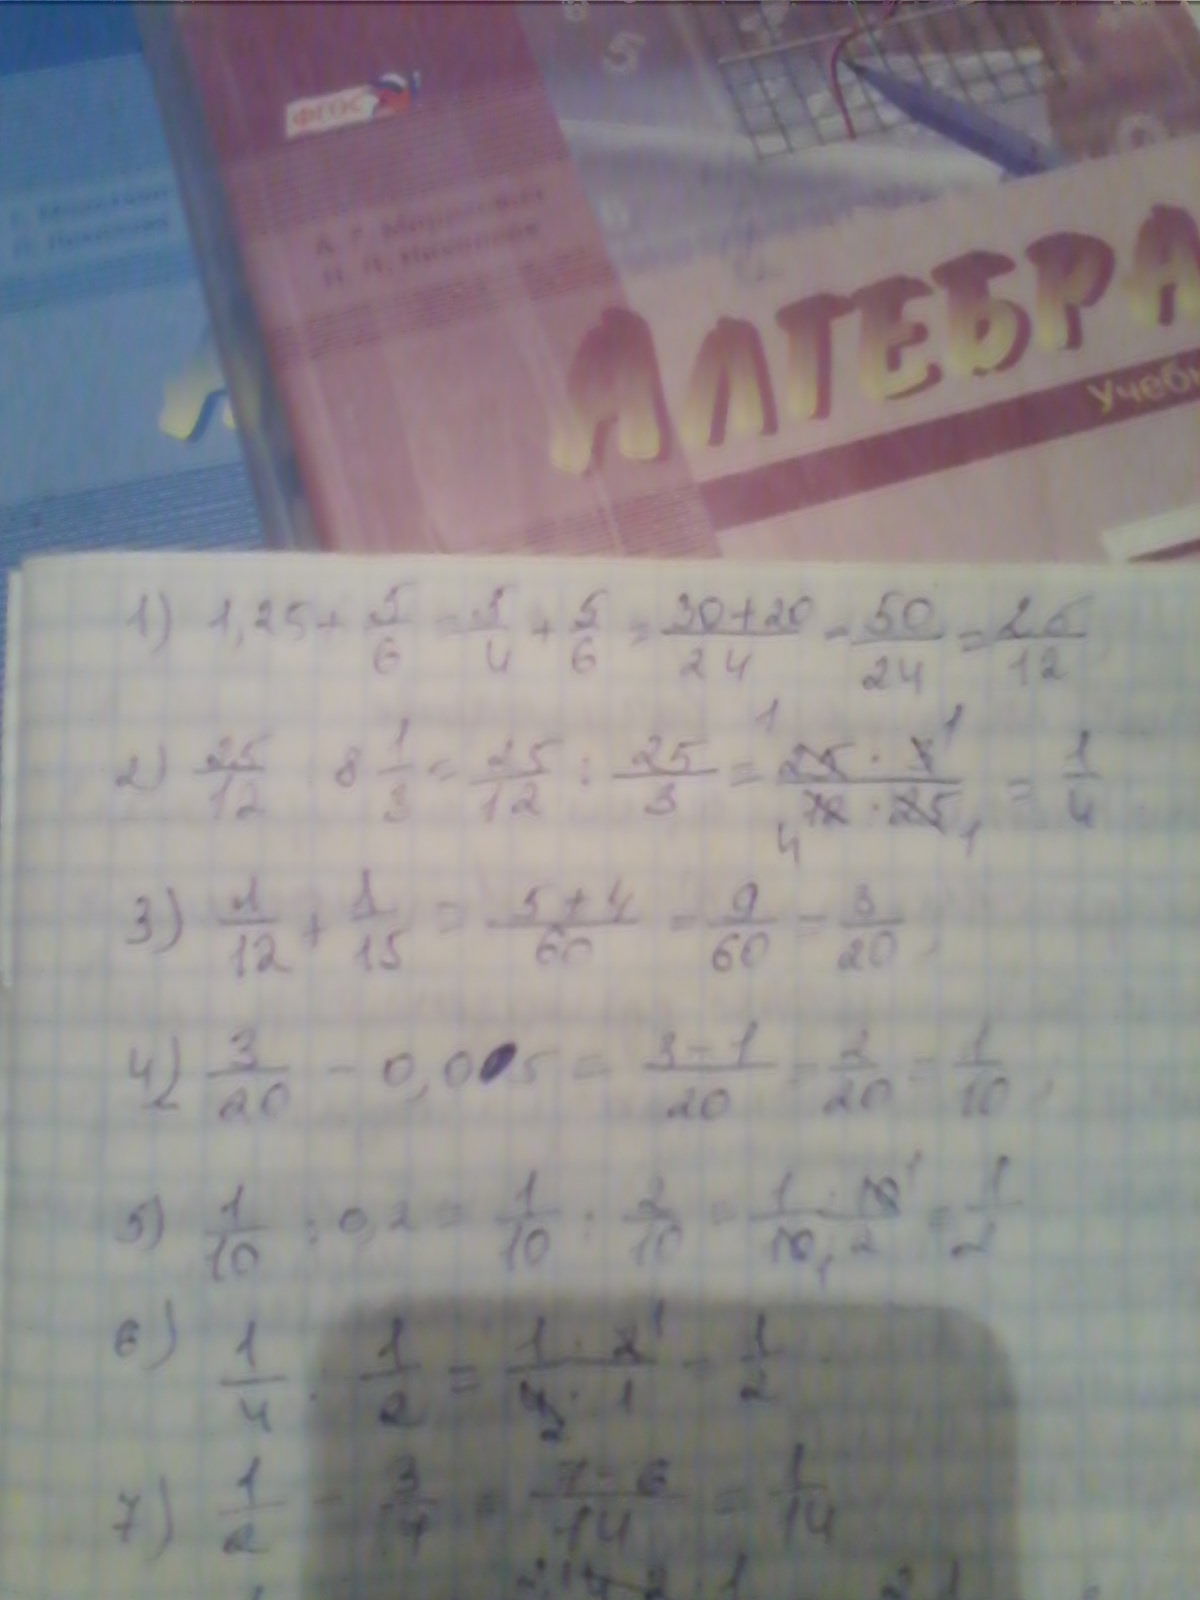 5
ФГОС
А. Г. Мордкович
Н. П. Николаев
АЛГЕБРА
Учебн
1) 1,25 + 5/6 = 5/4 + 5/6 = 30+20/24 = 50/24 = 25/12
2) 25/12 : 8 1/3 = 25/12 : 25/3 = 25 · 3/12 · 25 = 1/4
3) 1/12 + 1/15 = 5+4/60 = 9/60 = 3/20,
4) 3/20 - 0,05 = 3-1/20 = 2/20 = 1/10,
5) 1/10 : 0,2 = 1/10 : 2/10 = 1 · 10/10 · 2 = 1/2
6) 1/4 : 1/2 = 1 · 2/4 · 1 = 1/2
7) 1/2 - 3/7 = 7-6/14 = 1/14